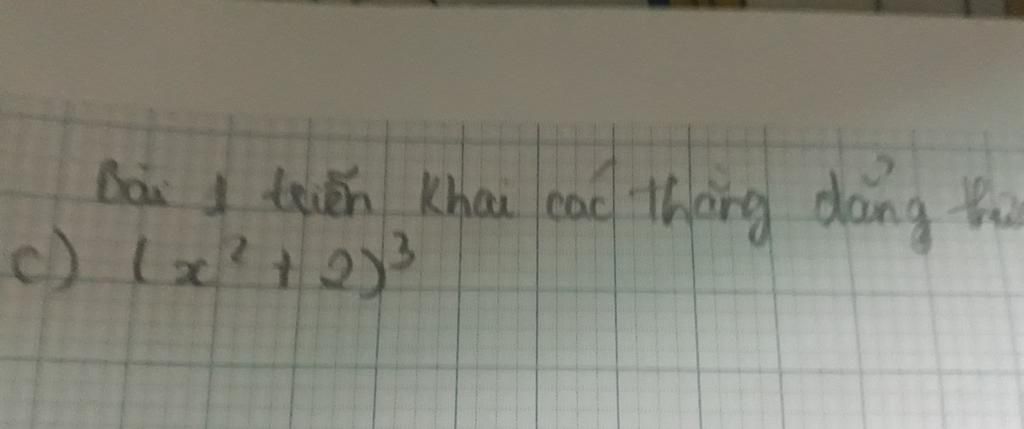 Bài 1 triển khai các thằng dẳng
c) (x² + 2)³